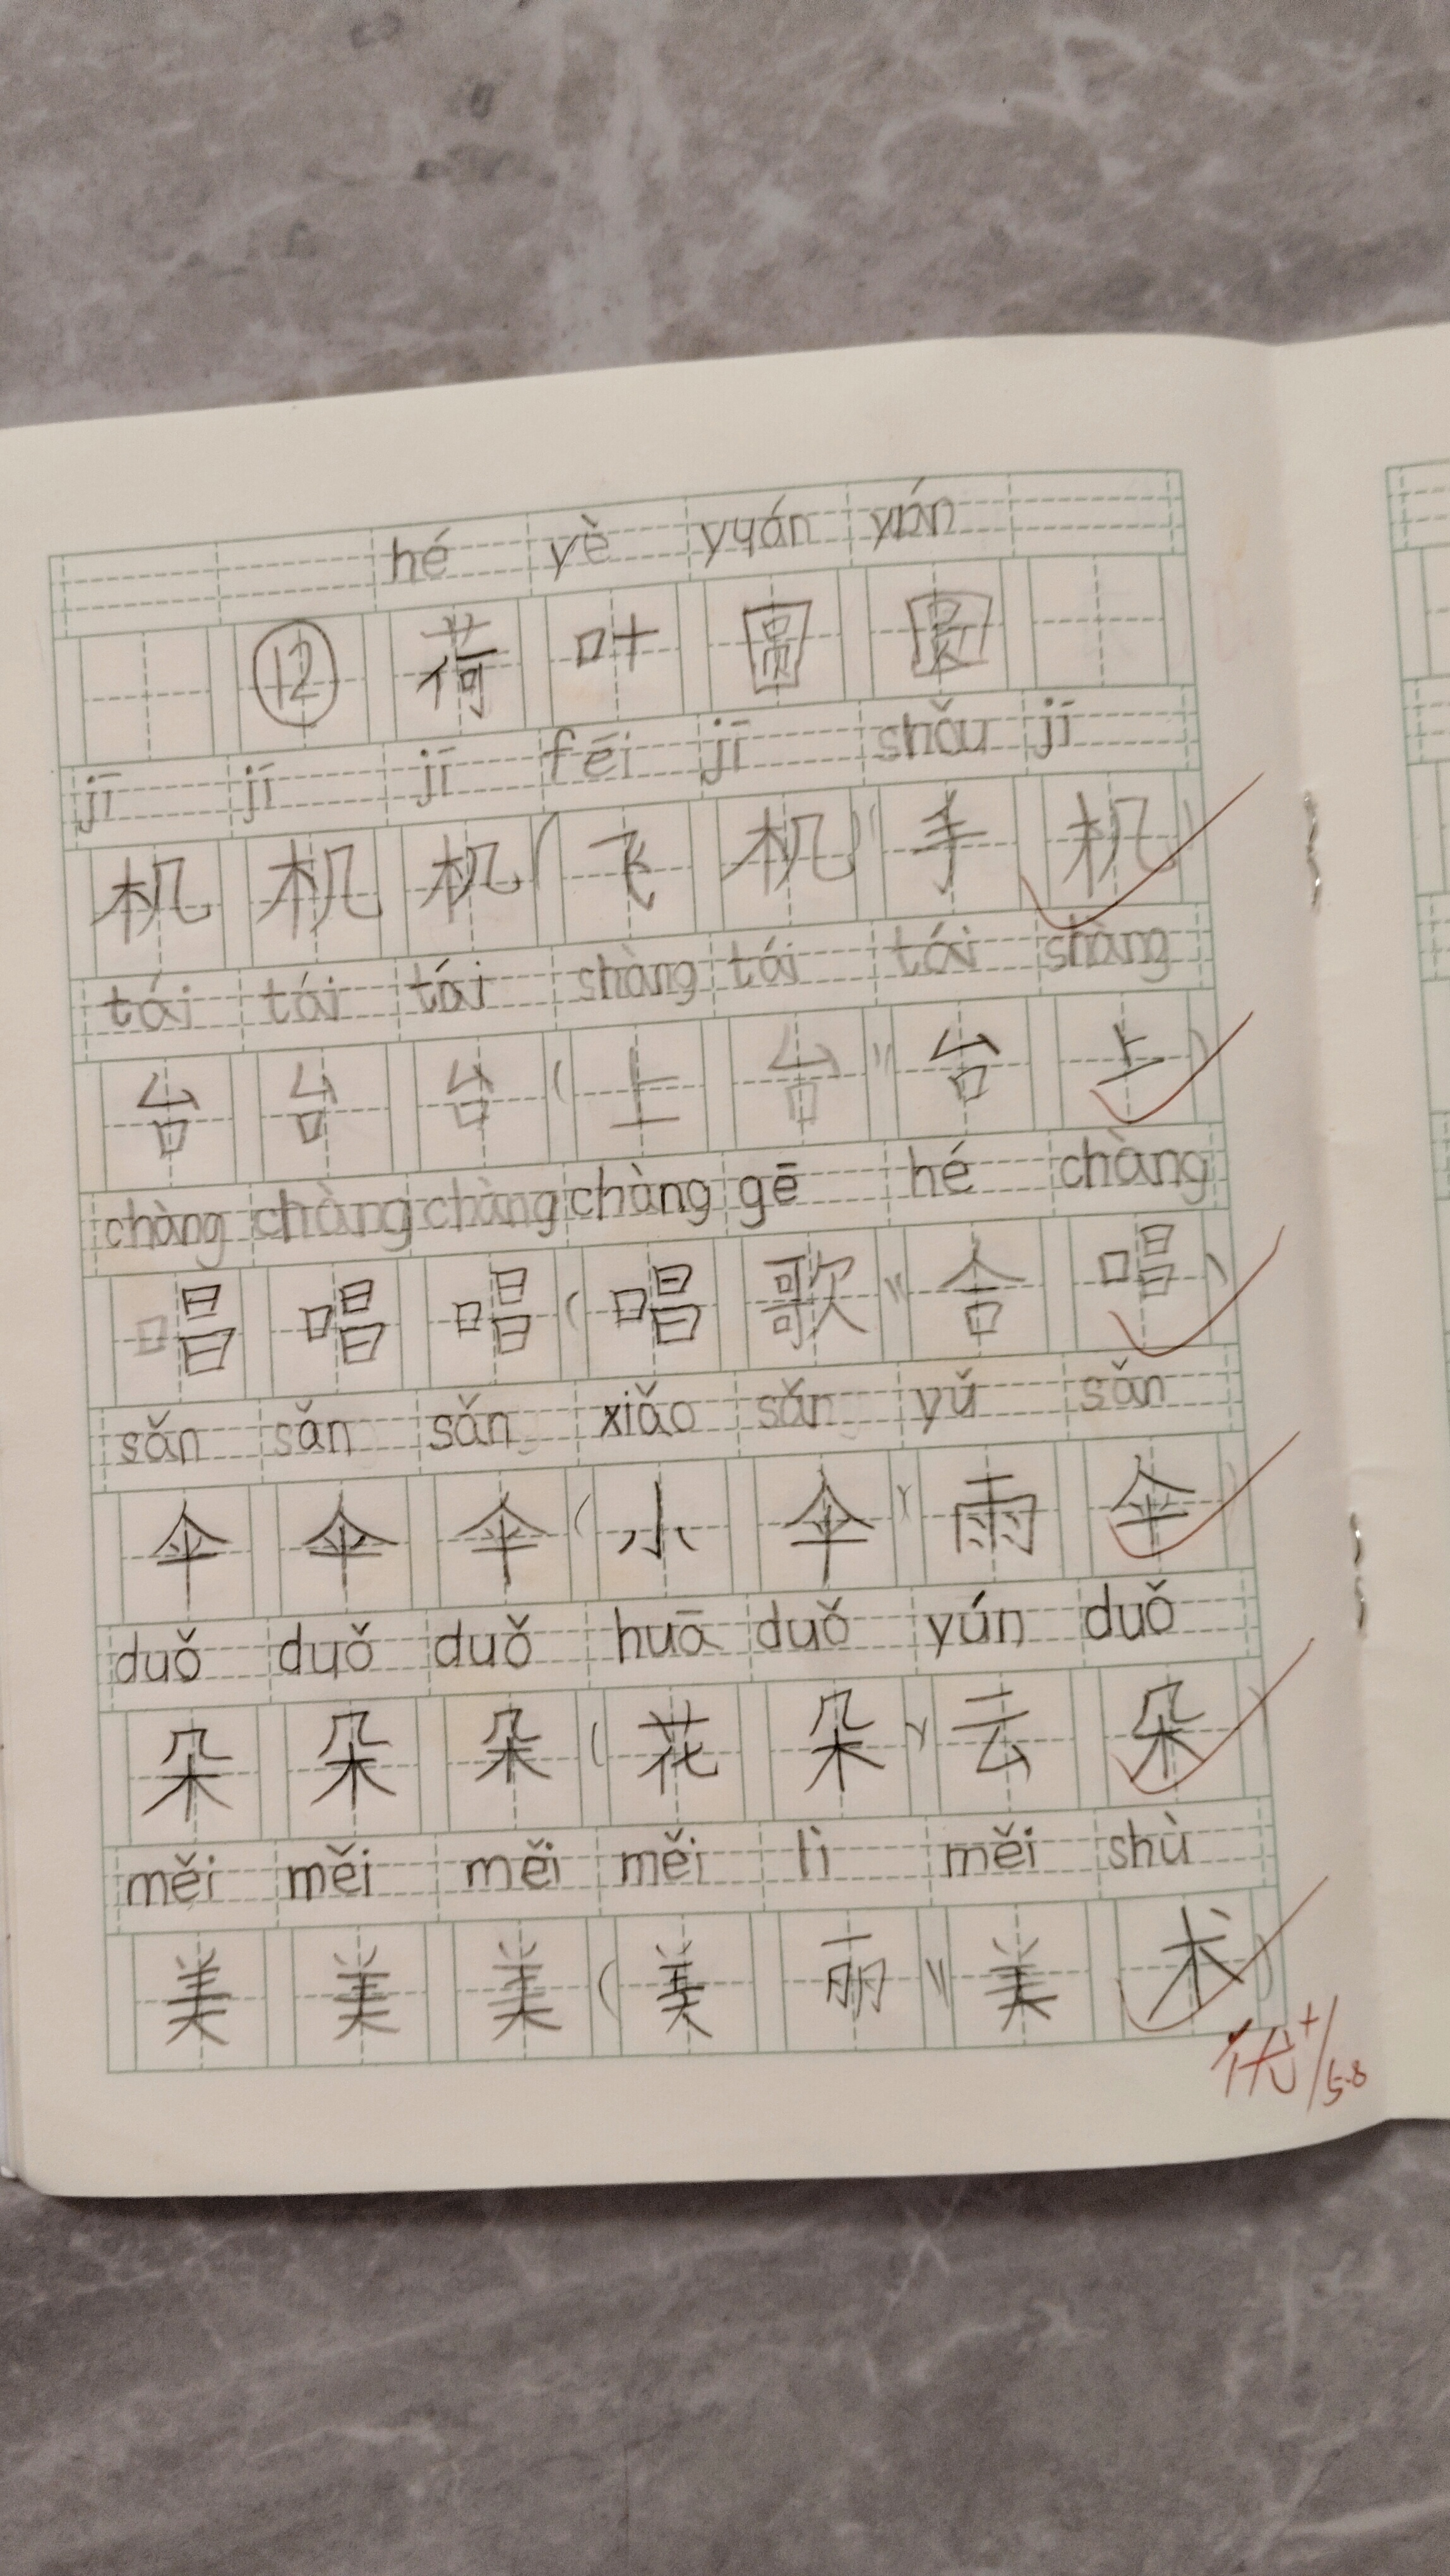 hé yè yuán yuán
⑫ 荷 叶 圆 圆
jī jī jī fēi jī shǒu jī
机 机 机 (飞 机)(手 机)
tái tái tái shàng tái tái shàng
台 台 台 (上 台)(台 上)
chàng chàng chàng chàng gē hé chàng
唱 唱 唱 (唱 歌)(合 唱)
sǎn sǎn sǎn xiǎo sǎn yǔ sǎn
伞 伞 伞 (小 伞)(雨 伞)
duǒ duǒ duǒ huā duǒ yún duǒ
朵 朵 朵 (花 朵)(云 朵)
měi měi měi měi lì měi shù
美 美 美 (美 丽)(美 术)
优+/5.8